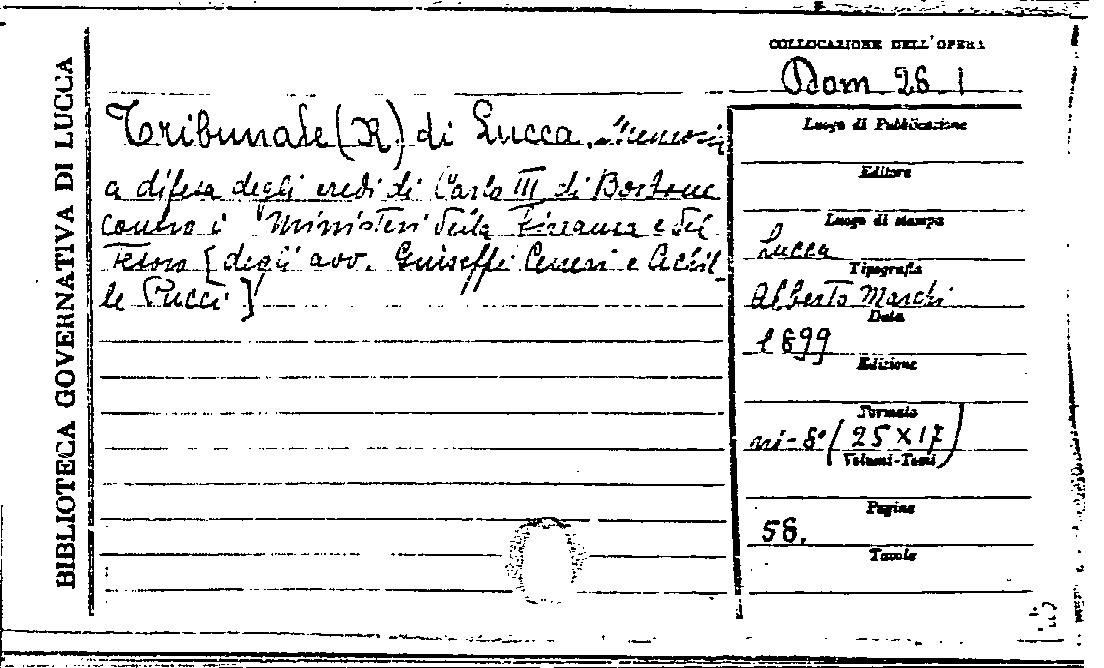 BIBLIOTECA GOVERNATIVA DI LUCCA
COLLOCAZIONE DELL'OPERA
Dom 26 1
Tribunale (R) di Lucca. Memoria
a difesa degli eredi di Carlo III di Borbone
contro i Ministeri della Finanza e del
Tesoro [degli avv. Guiseffi Ceneri e Achil-
le Pucci]
Luogo di Pubblicazione
Editore
Luogo di stampa
Lucca
Tipografia
Alberto Marchi
Data
1899
Edizione
Formato
in-8° (25X17)
Volumi-Tomi
Pagine
58.
Tavole